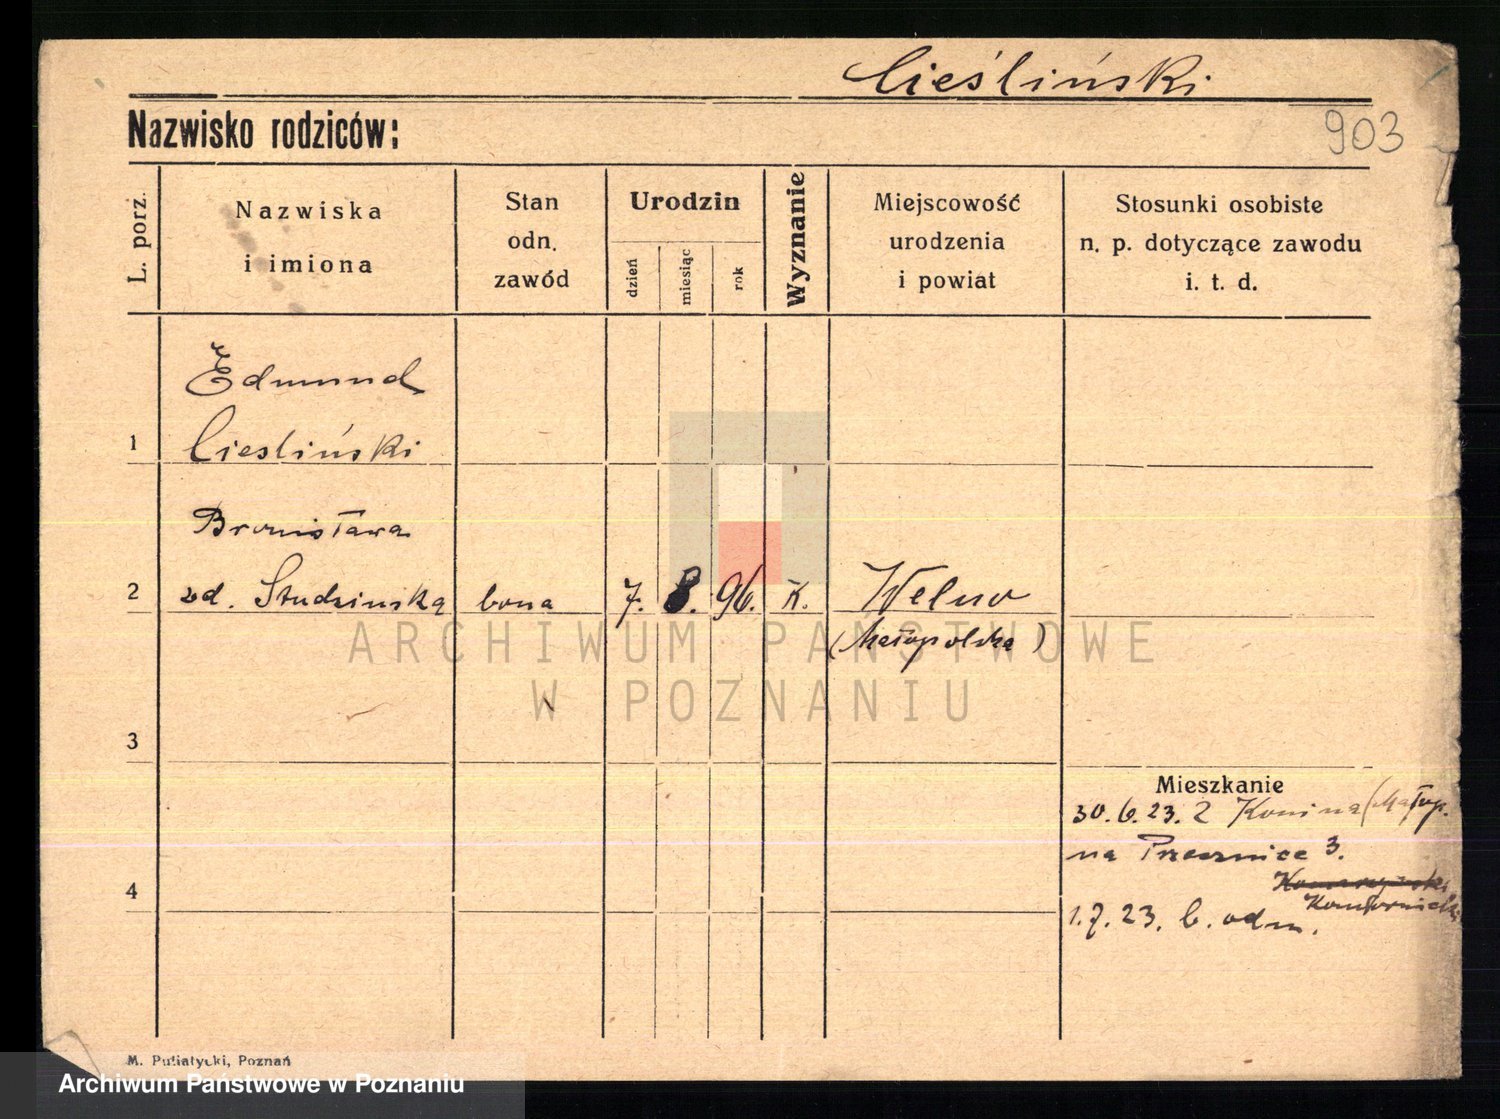 Cieśliński
Nazwisko rodziców:
903
L. porz.
Nazwiska
i imiona
Stan
odn.
zawód
Urodzin
dzień
miesiąc
rok
Wyznanie
Miejscowość
urodzenia
i powiat
Stosunki osobiste
n. p. dotyczące zawodu
i. t. d.
Edmund
1 Ciesliński
Bronisława
2 zd. Studzinska bona 7. 8. 96. K. Welno
(Małopolska)
ARCHIWUM PAŃSTWOWE
W POZNANIU
3
Mieszkanie
30.6.23. z Konina (Małop.
na Przecznice 3.
4
1.7.23. b. odm.
M. Putiatycki, Poznań
Archiwum Państwowe w Poznaniu